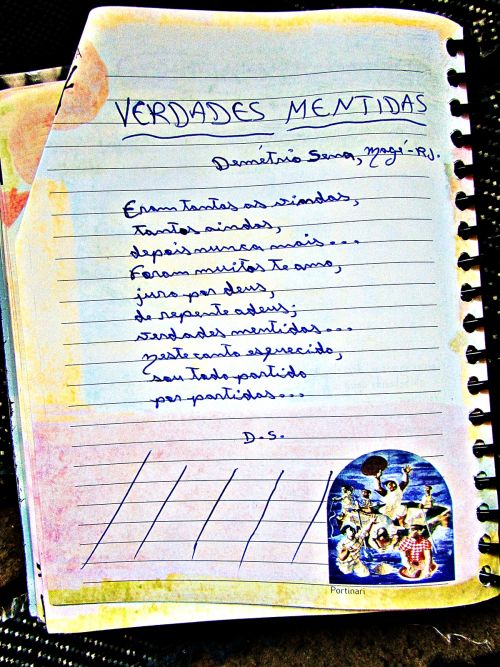 VERDADES MENTIDAS
Demétrio Sena, Magé-RJ.
Eram tantas as vindas,
tantos ainda,
depois nunca mais...
Foram muitos te amo,
juro por deus,
de repente adeus;
verdades mentidas...
Neste canto esquecido,
sou todo partido
por partidas...
D.S.
Portinari